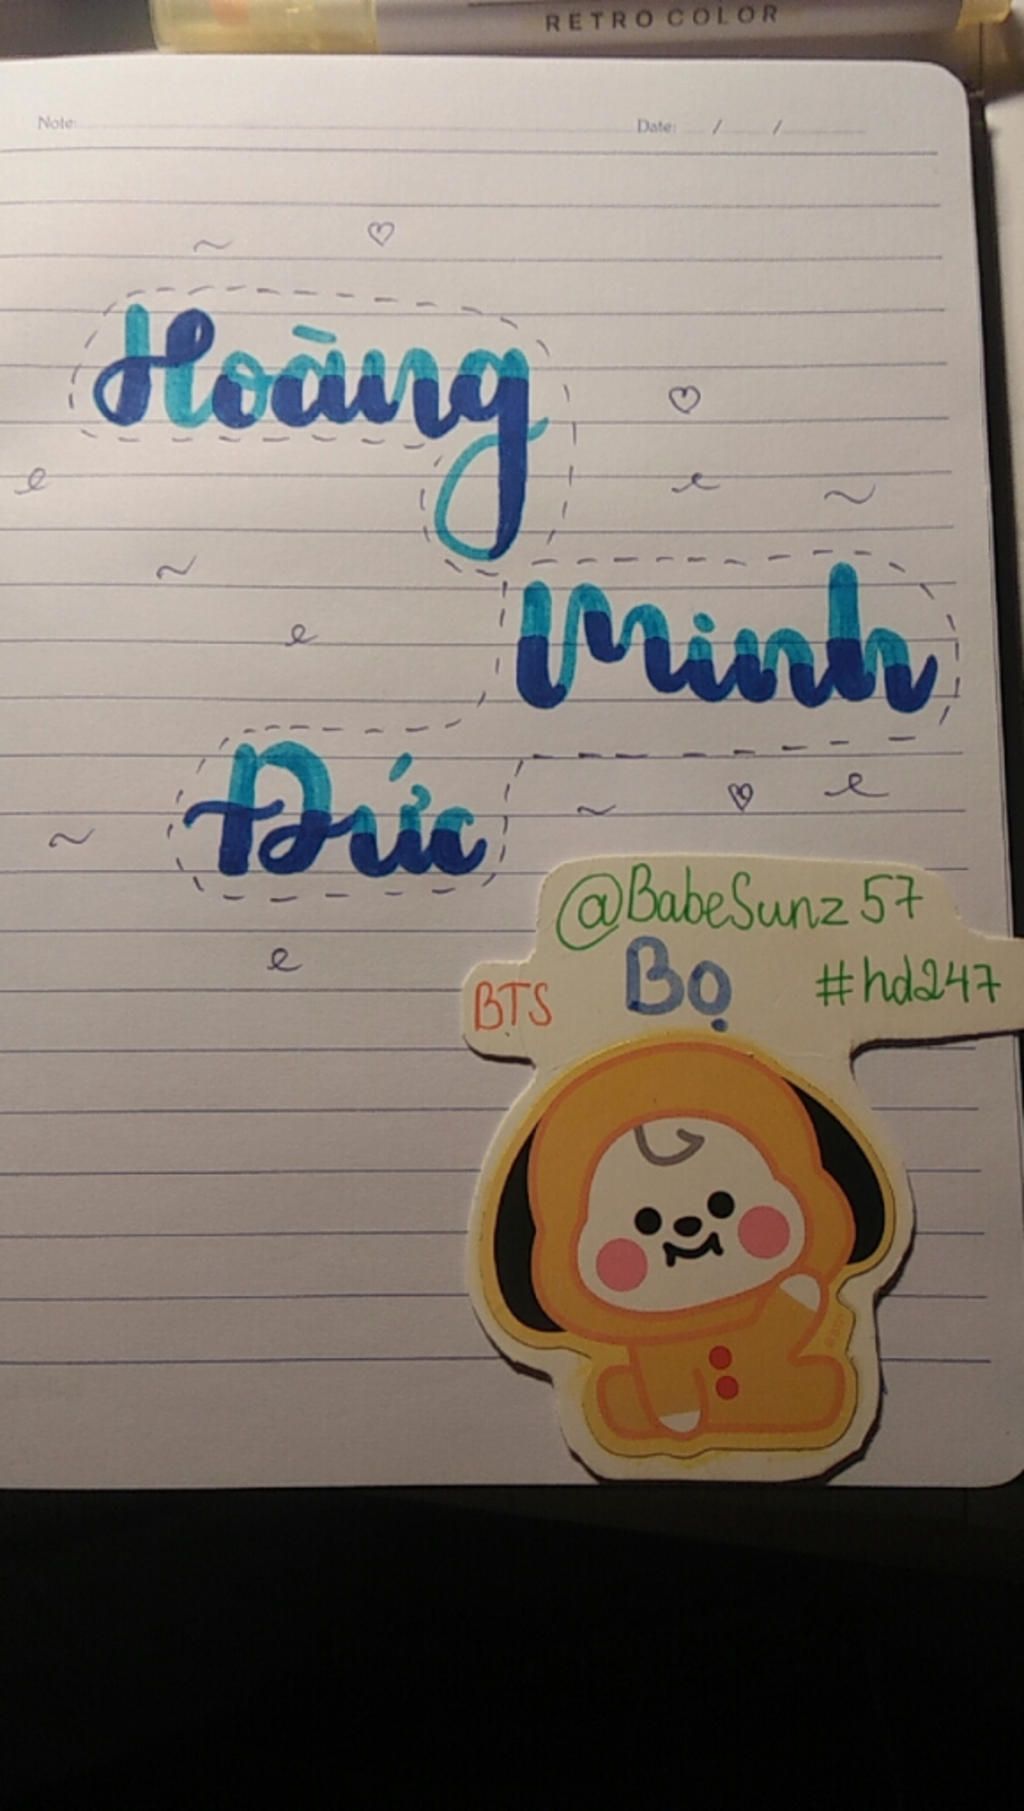 RETRO COLOR
Note:
Date: / /
Hoàng
Minh
Đức
@BabeSunz57
BTS Bọ #hd247